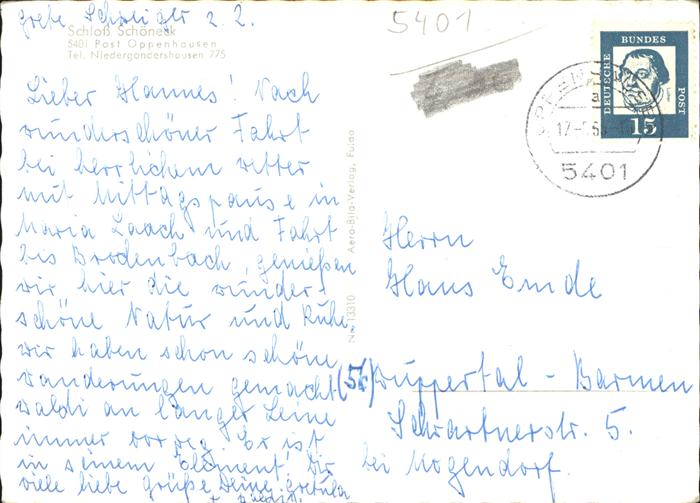 Grete Schweiger z. Z.
Schloß Schöneck
5401 Post Oppenhausen
Tel. Niedergondershausen 775
Lieber Hannes! Nach
wunderschöner Fahrt
bei herrlichem wetter
mit Mittagspause in
Maria Laach und Fahrt
bis Brodenbach, genießen
wir hier die wunder-
schöne Natur und Ruhe.
wir haben schon schöne
wanderungen gemacht
waldi an langer Leine
immer vorweg. Er ist
in seinem Element. Dir
viele liebe grüße Deine
Aero-Bild-Verlag, Fulda
Nr. 13310
5401
DEUTSCHE BUNDES POST
15
5401
Herrn
Hans Emde
(56) Wuppertal - Barmen
Schwartnerstr. 5.
bei Mogendorf.